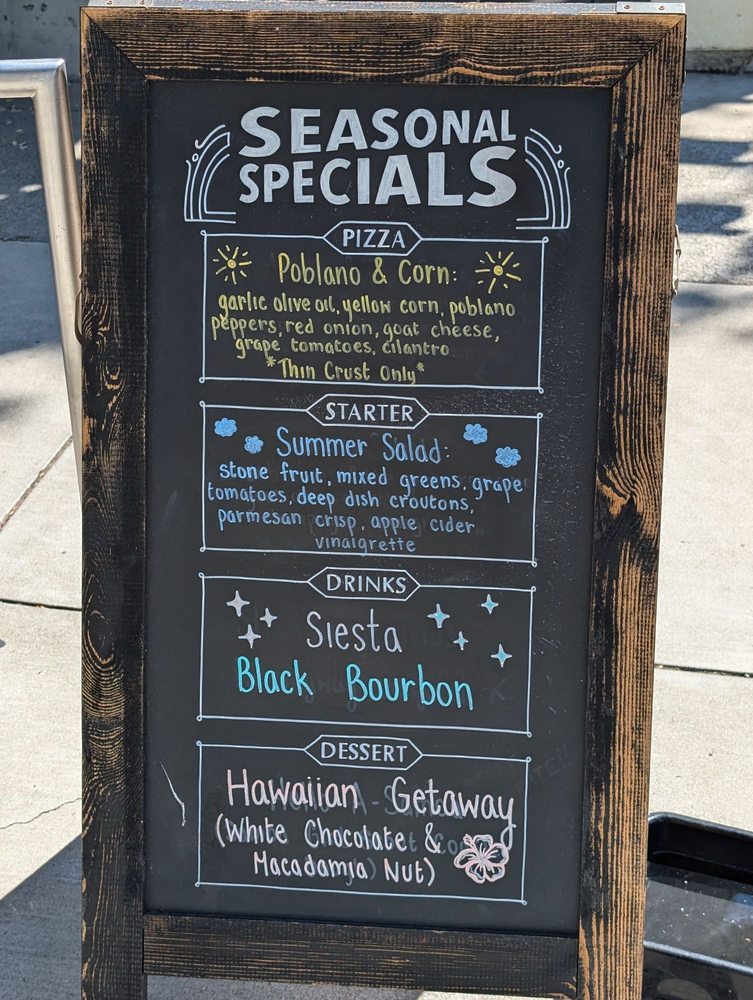 SEASONAL
SPECIALS
PIZZA
Poblano & Corn:
garlic olive oil, yellow corn, poblano
peppers, red onion, goat cheese,
grape tomatoes, cilantro
*Thin Crust Only*
STARTER
Summer Salad:
stone fruit, mixed greens, grape
tomatoes, deep dish croutons,
parmesan crisp, apple cider
vinaigrette
DRINKS
Siesta
Black Bourbon
DESSERT
Hawaiian Getaway
(White Chocolate &
Macadamia Nut)